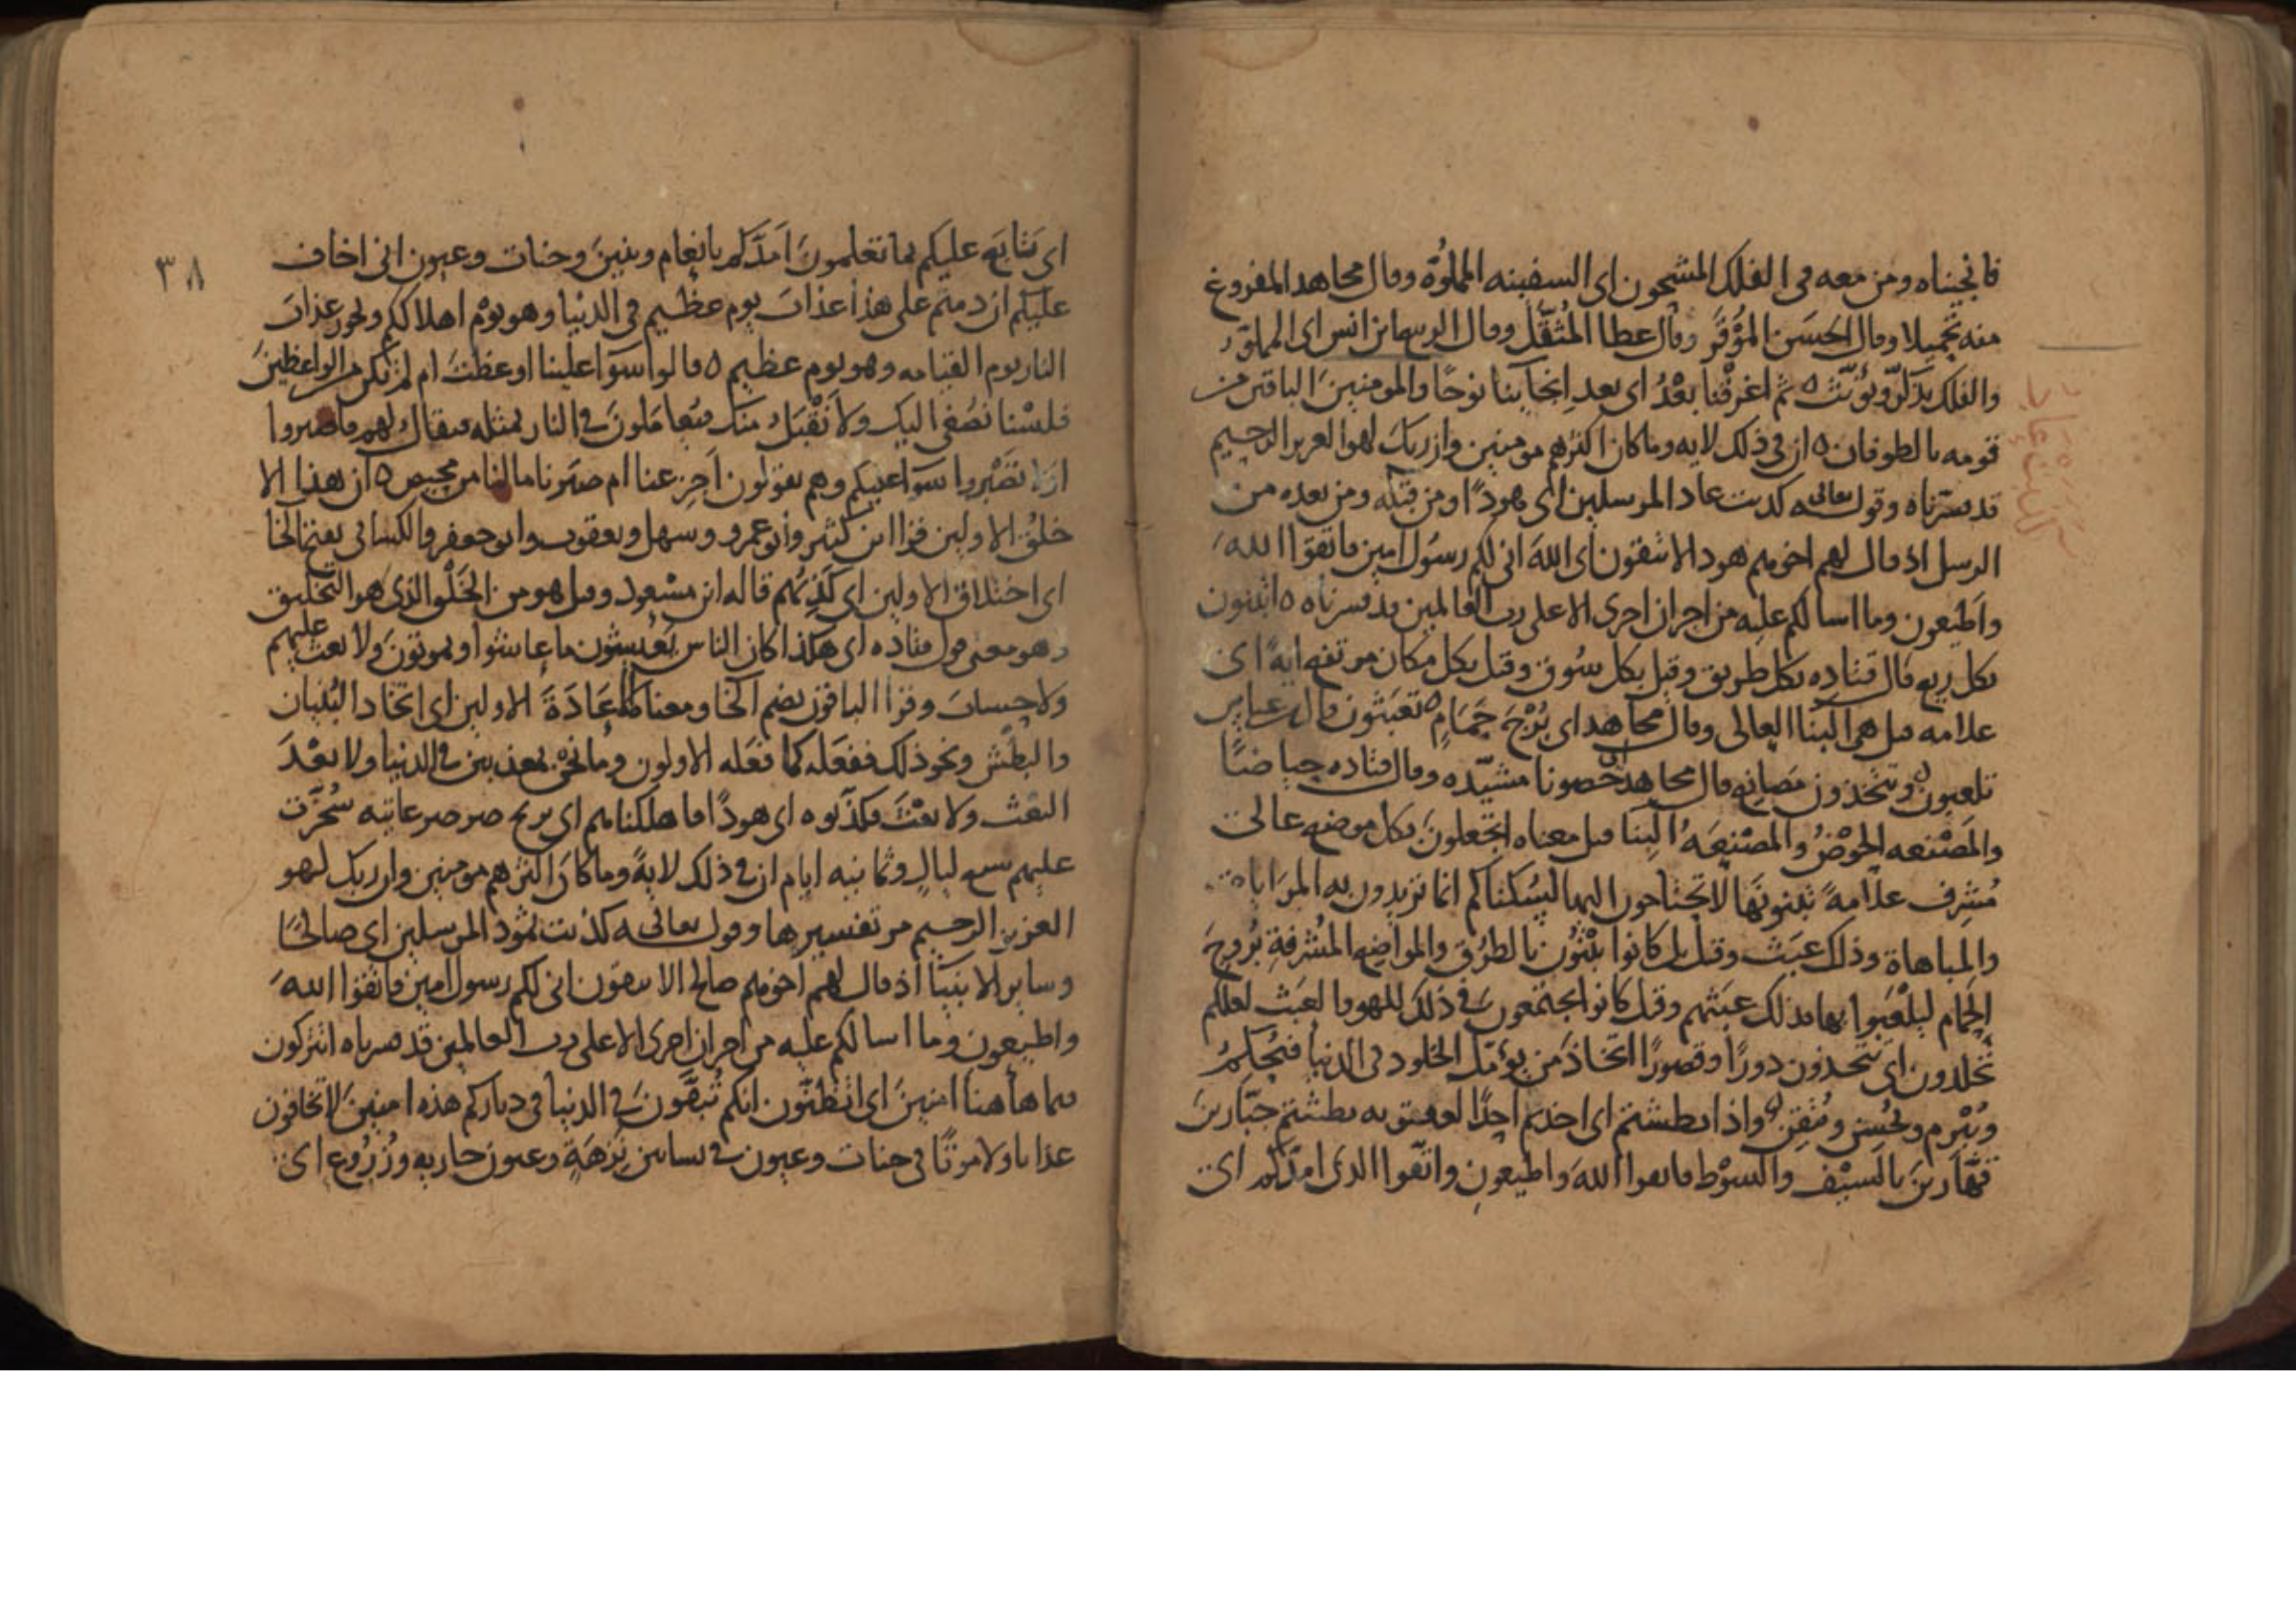 فانجيناه ومن معه فى الفلك المشحون اى السفينه المملوّة وقال مجاهد المفروغ
منه تحميلا وقال الحسن المؤقر وقال عطا المثقّل وقال الربيع بن انس اى المملو
والفلك يذكّر ويؤنّث ثم اغرقنا بعدُ اى بعد انجاينا نوحًا والمومنين الباقين من
قومه بالطوفان ان فى ذلك لايه وما كان اكثرهم مومنين وان ربك لهو العزيز الرحيم
قد فسّرناه وقوله تعالى كذبت عاد المرسلين اى هودًا ومن قبله ومن بعده من
الرسل اذ قال لهم اخوهم هود الا تتقون اى الله انى لكم رسول امين فاتقوا الله
واطيعون وما اسالكم عليه من اجر ان اجرى الا على رب العالمين قد فسرناه اتبنون
بكل ريع قال قتاده بكل طريق وقيل بكل سوق وقيل بكل مكان مرتفع ايةً اى
علامه قيل هى البنا العالى وقال مجاهد اى بُرْجَ حَمَامٍ تعبثون قال ابن عباس
تلعبون وتتخذون مصانع قال مجاهد حصونا مشيّده وقال قتاده حياضًا
والمصنعه الحوض والمصنعه البنا قيل معناه اتجعلون بكل موضع عال
مُشرف علامةً تبنونها لا تحتاجون اليها لسُكناكم انما تريدون به المراياة
والمباهاة وذلك عبث وقيل بل كانوا يبنون بالطرق والمواضع المشرفة بروج
الحمام ليلعبوا بها فذلك عبثهم وقيل كانوا يجتمعون فى ذلك للهو والعبث لعلكم
تخلدون اى تتخذون دورًا وقصورًا اتخاذ من يؤمّل الخلود فى الدنيا فيُحكمُ
ويُبرم ويُحسن ويُتقن واذا بطشتم اى اخذتم احدًا لعقوبه بطشتم جبّارين
قهّارين بالسيف والسوط فاتقوا الله واطيعون واتّقوا الذى امدّكم اى
٣٨
اى يتابع عليكم بما تعلمون امدّكم بانعام وبنين وجنات وعيون انى اخاف
عليكم ان دمتم على هذا عذاب يوم عظيم فى الدنيا وهو يوم اهلاككم ولحوق عذاب
النار يوم القيامه وهو يوم عظيم قالوا سوا علينا اوعظت ام لم تكن من الواعظين
فلسْنا نصغى اليك ولا نقبل منك فيُعاملون فى النار بمثله فيقال لهم فاصبروا
او لا تصبروا سوا عليكم وهم يقولون اجزعنا ام صبرنا مالنا من محيص ان هذا الا
خلق الاولين قرا ابن كثير وابو عمرو وسهل ويعقوب وابو جعفر والكسائى بفتح الخا
اى اختلاق الاولين اى كذبهم قاله ابن مسعود وقيل هو من الخلْق الذى هو التخليق
وهو معنى قول قتاده اى هكذا كان الناس يعيشون ما عاشوا ويموتون ولا بعث عليهم
ولا حساب وقرا الباقون بضم الخا ومعناه عادة الاولين اى اتخاذ البنيان
والبطش ونحو ذلك ففعله كما فعله الاولون وما نحن بمعذبين فى الدنيا ولا بعْدَ
البعث ولا بعث فكذّبوه اى هودًا فاهلكناهم اى بريح صرصر عاتيه سُخّرت
عليهم سبع ليال وثمانيه ايام ان فى ذلك لايةً وما كان اكثرهم مومنين وان ربك لهو
العزيز الرحيم مر تفسيرها وقوله تعالى كذبت ثمود المرسلين اى صالحًا
وساير الانبيا اذ قال لهم اخوهم صالح الا تتقون انى لكم رسول امين فاتقوا الله
واطيعون وما اسالكم عليه من اجر ان اجرى الا على رب العالمين قد فسرناه اتتركون
فيما هاهنا امنين اى اتظنّون انكم تُبقّون فى الدنيا فى دياركم هذه امنين لا تخافون
عذابا ولا موتًا فى جنات وعيون فى بساتين نزهة وعيون جاريه وزُرُوع اى